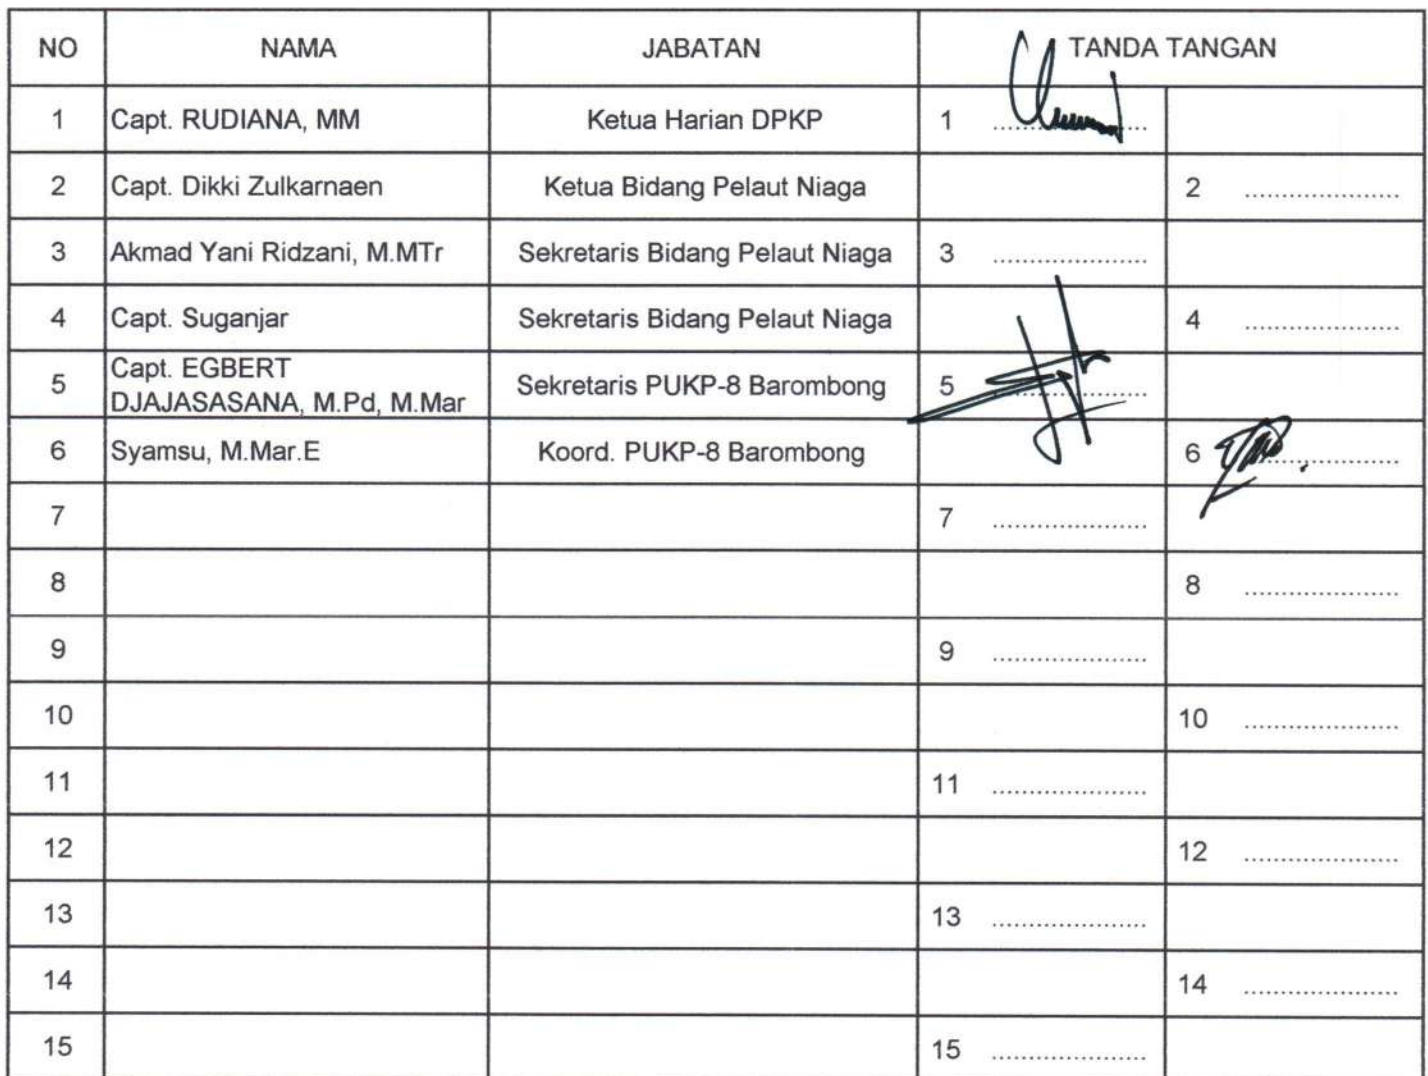 NO NAMA JABATAN TANDA TANGAN
1 Capt. RUDIANA, MM Ketua Harian DPKP 1 ....................
2 Capt. Dikki Zulkarnaen Ketua Bidang Pelaut Niaga 2 ....................
3 Akmad Yani Ridzani, M.MTr Sekretaris Bidang Pelaut Niaga 3 ....................
4 Capt. Suganjar Sekretaris Bidang Pelaut Niaga 4 ....................
5 Capt. EGBERT
DJAJASASANA, M.Pd, M.Mar Sekretaris PUKP-8 Barombong 5 ....................
6 Syamsu, M.Mar.E Koord. PUKP-8 Barombong 6 ....................
7 7 ....................
8 8 ....................
9 9 ....................
10 10 ....................
11 11 ....................
12 12 ....................
13 13 ....................
14 14 ....................
15 15 ....................